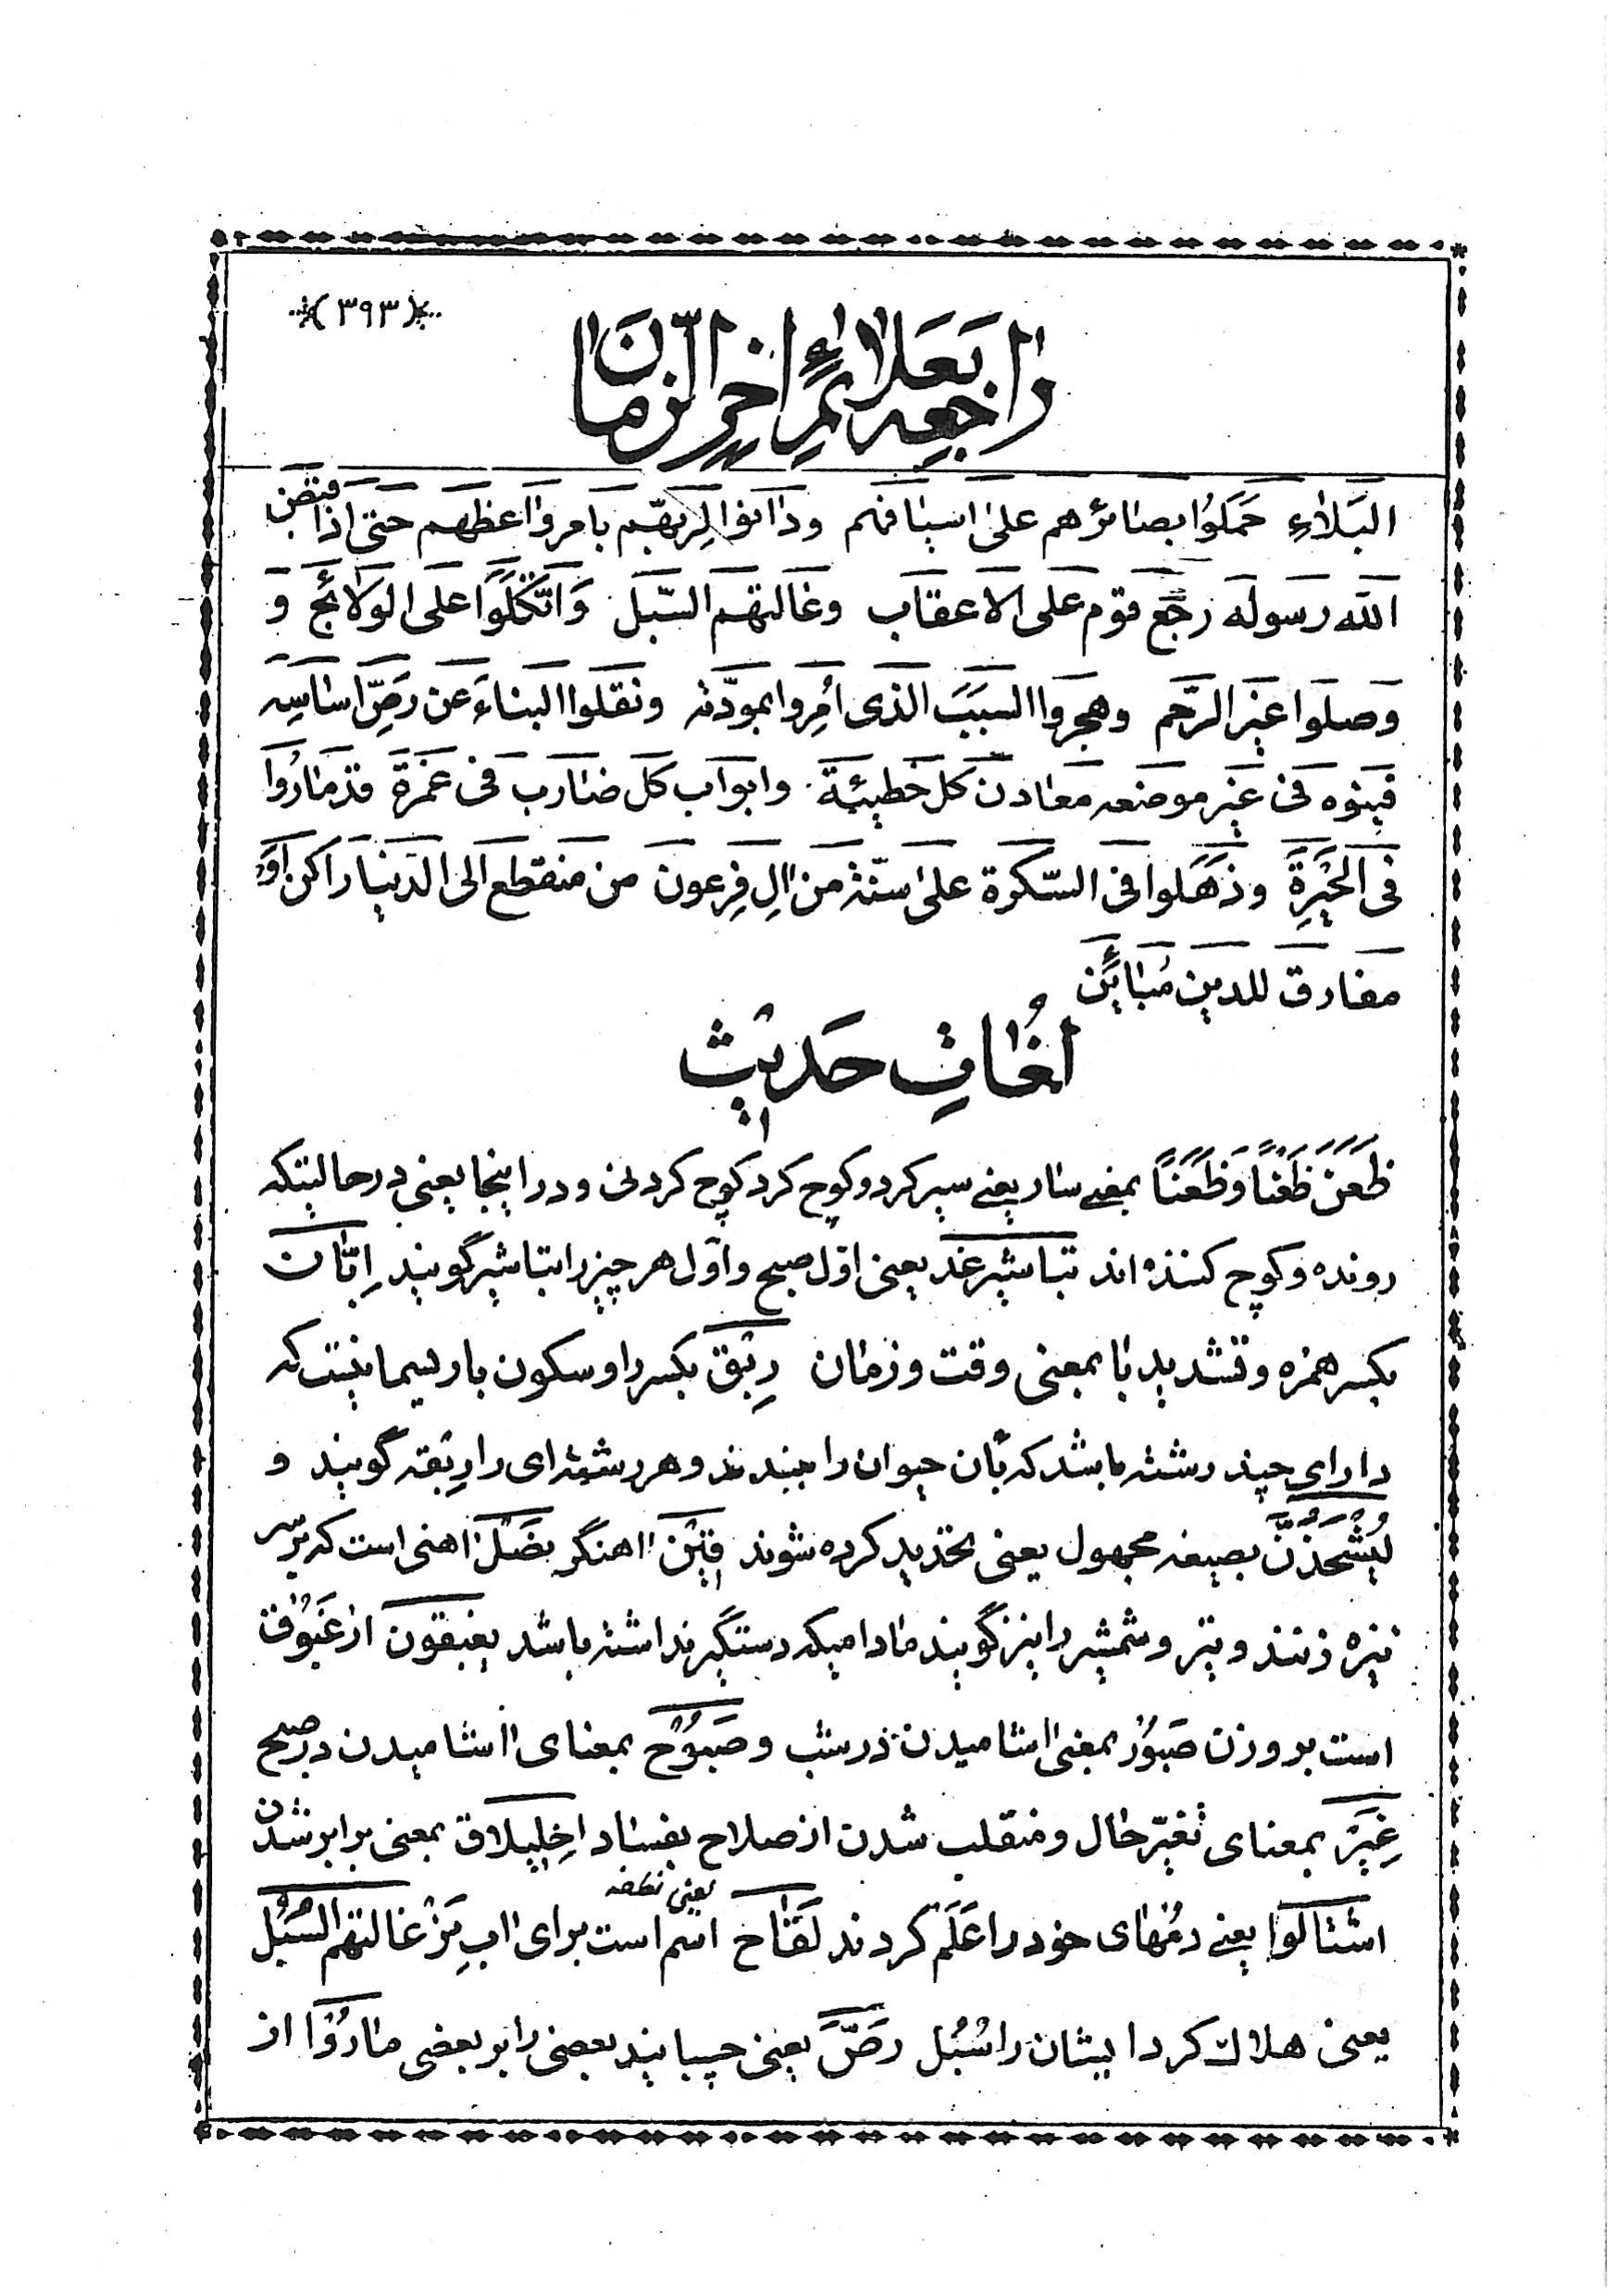 (۳۹۳)
راجعه بعلائم اخر الزمان
البَلاءِ حَمَلوُا بصائرهم على اسيافهم ودانوا لِربّهم بامر واعظهم حتى اذا قبض
الله رسوله رجع قوم على الاعقاب وغالتهم السّبل وَاتَّكَلُوا على الولائج و
وصلوا غير الرّحم وهجروا السبَبَ الذى اُمِروا بمودّته ونقلوا البناءَ عن رصِّ اساسِه
فبنوه فى غير موضعه معادن كل خطيئة وابواب كل ضارب فى غمرة قد ماروُا
فى الحَيْرِةَ وذَهَلوا فى السّكرة على سنّة من الِ فِرعون من منقطع الى الدنيا راكن اَوْ
مفارق للدين مُبايِن
لُغاتِ حَديث
ظَعَنَ ظَعْناً وَظَعَناً بمعنے سار يعنے سير كرد و كوچ كرد كوچ كردن و در اينجا يعنى در حاليتكه
رونده و كوچ كننده اند تباشير غد يعنى اوّل صبح و اوّل هر چيز را تباشير گويند اِبّان
بكسر همزه و تشديد با بمعنى وقت و زمان رِبْق بكسر را و سكون با ريسمانيست كه
داراى چند رشته باشد كه بآن حيوان را ببندند و هر رشته اى را رِبقه گويند و
لَيُشْحَذَنَّ بصيغه مجهول يعنى تحذيد كرده شوند قَيْن اهنگر نَصْل اهنى است كه بر سر
نيزه زنند و تير و شمشير را نيز گويند ماداميكه دستگير نداشته باشد يغبقون از غَبوُق
است بر وزن صَبوُر بمعنى اشاميدن در شب و صَبوُح بمعناى اشاميدن در صبح
غِيَر بمعناى تغيّر حال و منقلب شدن از صلاح بفساد اخليلاق بمعنى برابر شدن
اشتالوا يعنے دمهاى خود را عَلَم كردند لَقاح اسم است براى اب نر يعنى نطفه غالتهم السُبُل
يعنى هلاك كرد ايشان را سُبُل رَصَّ يعنى چسبانيد بعضى را بر بعضى ماروُا از